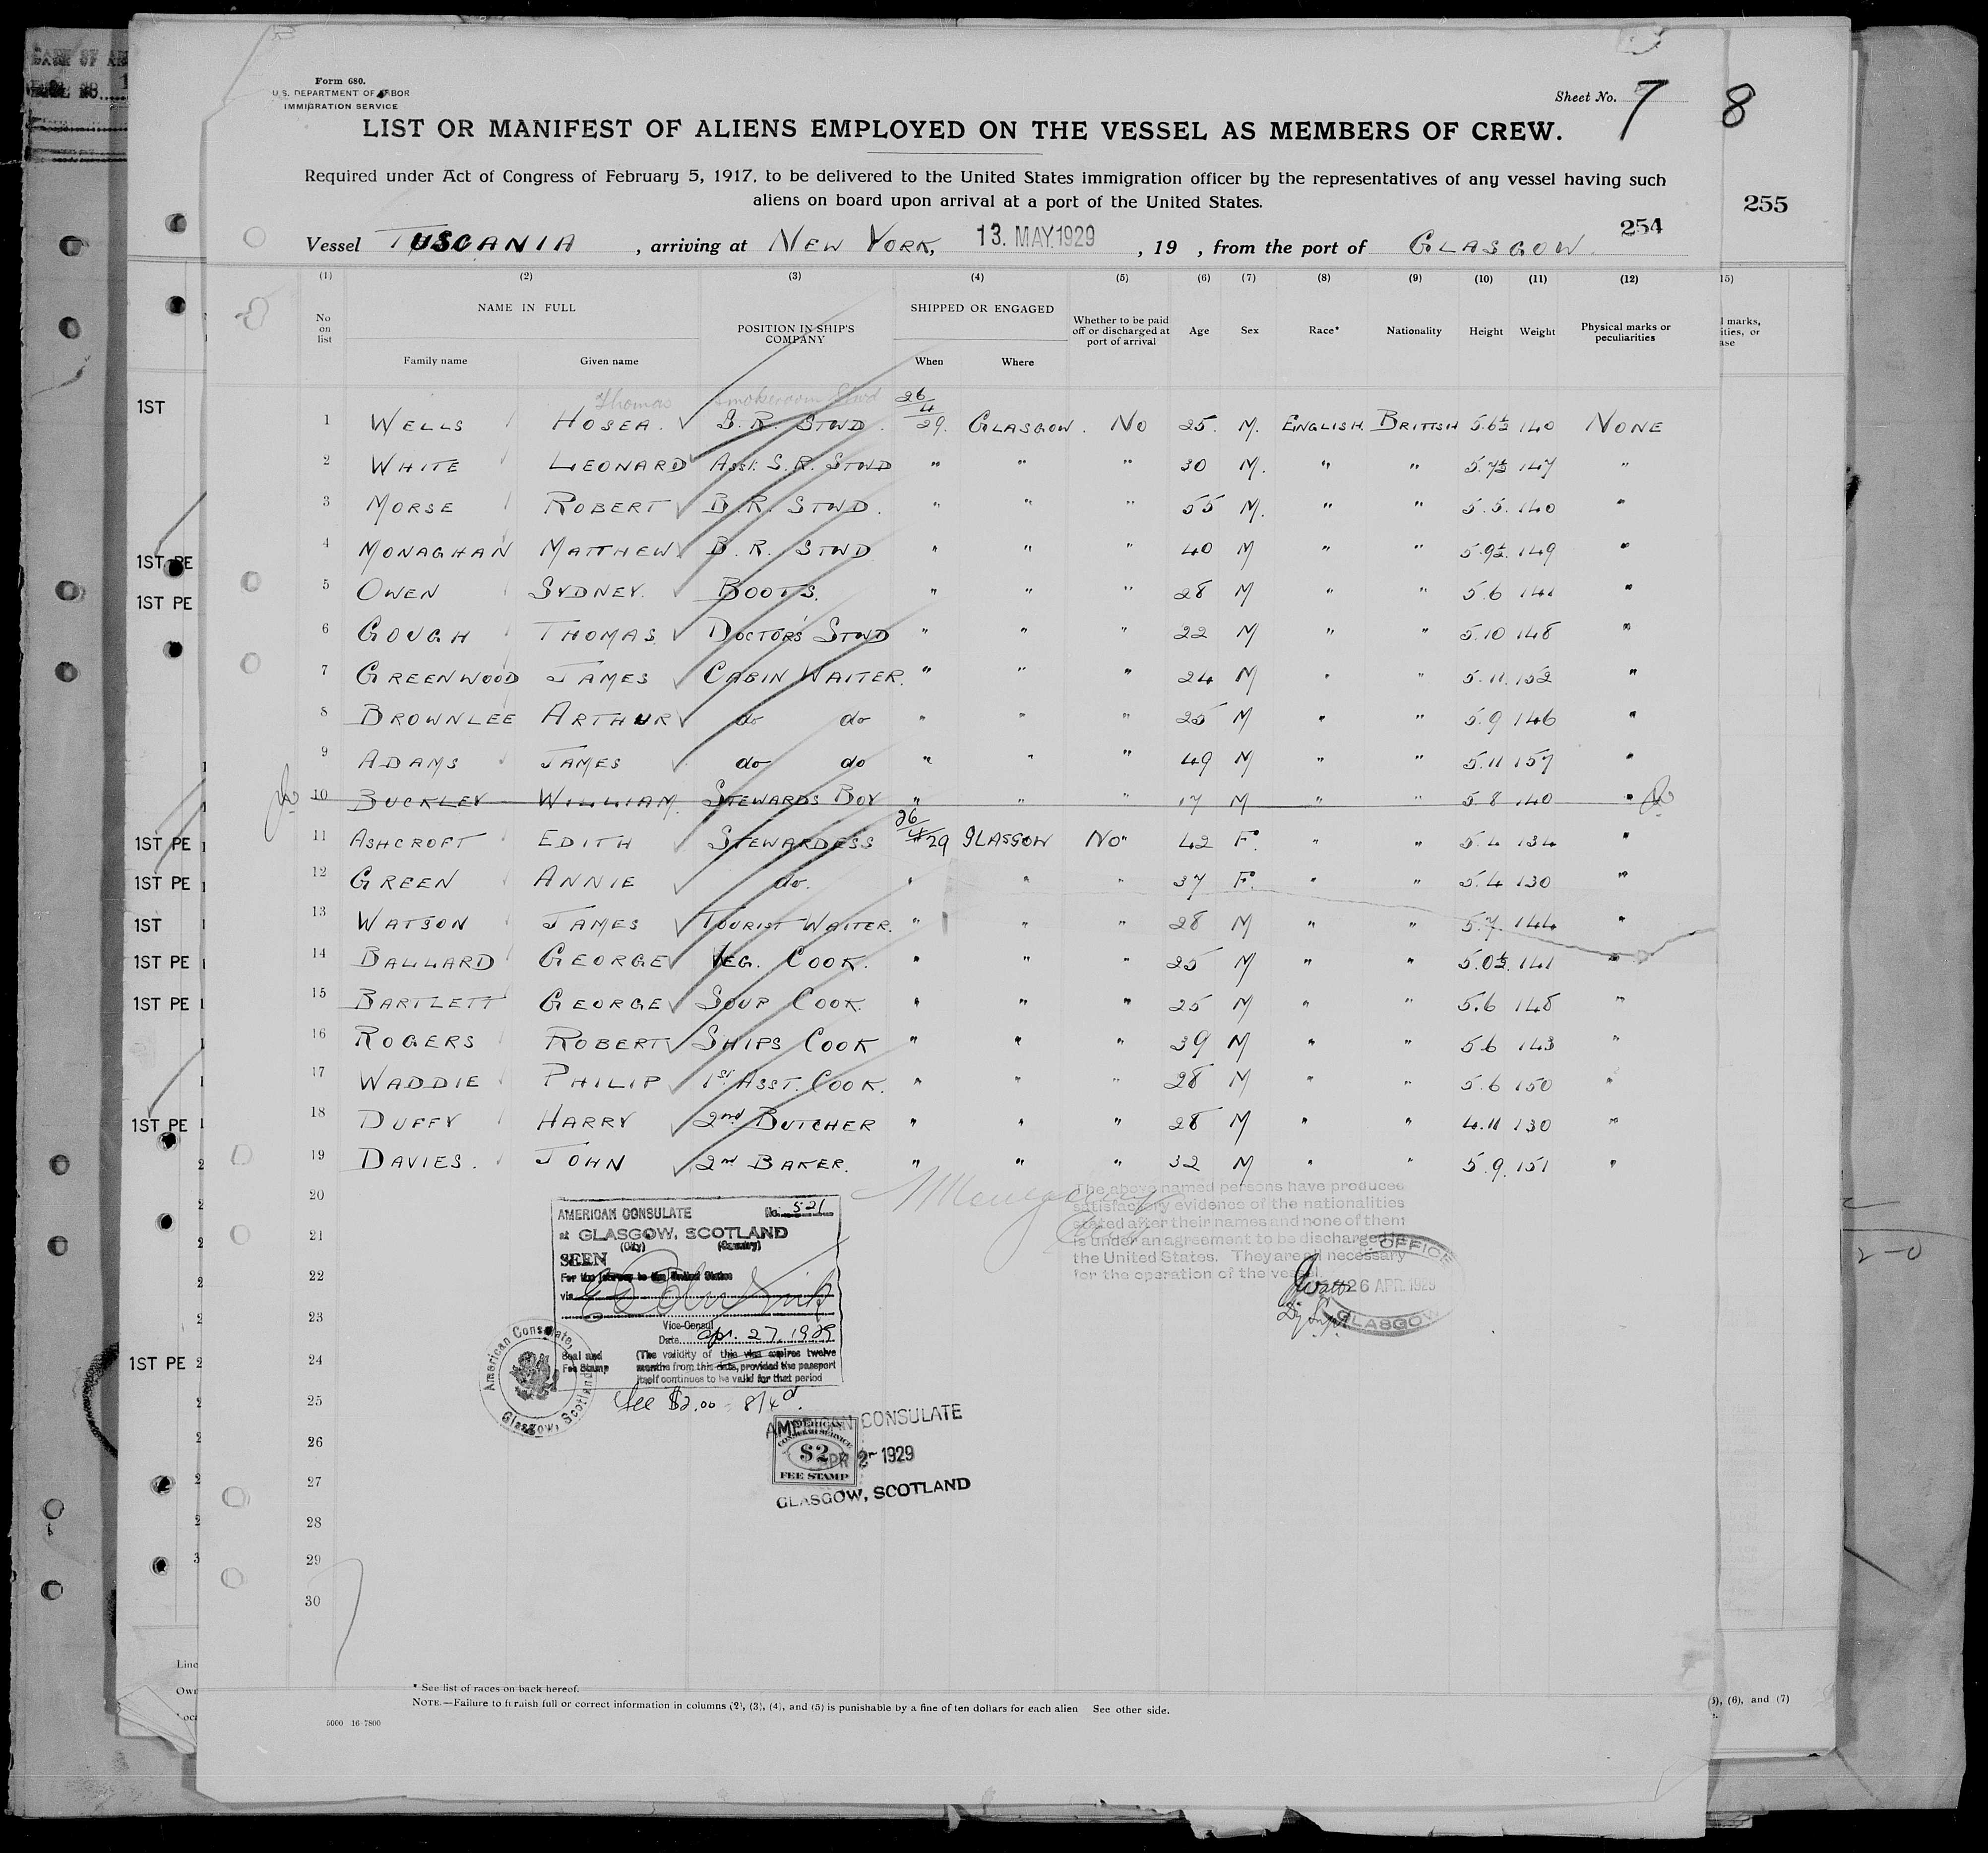 Form 680.
U.S. DEPARTMENT OF LABOR
IMMIGRATION SERVICE
Sheet No. 7
8
LIST OR MANIFEST OF ALIENS EMPLOYED ON THE VESSEL AS MEMBERS OF CREW.
Required under Act of Congress of February 5, 1917, to be delivered to the United States immigration officer by the representatives of any vessel having such
aliens on board upon arrival at a port of the United States.
255
254
Vessel TUSCANIA , arriving at NEW YORK, 13. MAY. 1929 , 19 , from the port of GLASGOW.
(1) (2) (3) (4) (5) (6) (7) (8) (9) (10) (11) (12) 15)
No on list NAME IN FULL Family name Given name POSITION IN SHIP'S COMPANY SHIPPED OR ENGAGED When Where Whether to be paid off or discharged at port of arrival Age Sex Race* Nationality Height Weight Physical marks or peculiarities
Thomas Smokeroom Stwd
1 WELLS HOSEA. S. R. STWD. 26/4/29. GLASGOW. NO 25. M. ENGLISH. BRITISH 5.6½ 140 NONE
2 WHITE LEONARD ASST. S.R. STWD " " " 30 M. " " 5.7½ 147 "
3 MORSE ROBERT B.R. STWD. " " " 55 M. " " 5.5. 140 "
4 MONAGHAN MATTHEW B.R. STWD " " " 40 M " " 5.9½. 149 "
5 OWEN SYDNEY. BOOTS. " " " 28 M " " 5.6 141 "
6 GOUGH THOMAS. DOCTOR'S STWD " " " 22 M " " 5.10 148 "
7 GREENWOOD JAMES CABIN WAITER. " " " 24 M " " 5.11. 152 "
8 BROWNLEE ARTHUR do do " " " 25 M " " 5.9 146 "
9 ADAMS JAMES do do " " " 49 M " " 5.11 157 "
10 BUCKLEY WILLIAM. STEWARDS BOY " " " 17 M " " 5.8 140 "
11 ASHCROFT EDITH STEWARDESS 26/4/29 GLASGOW NO" 42 F. " " 5.4 134 "
12 GREEN ANNIE do. " " " 37 F. " " 5.4 130 "
13 WATSON JAMES TOURIST WAITER. " " " 28 M " " 5.7. 144 "
14 BALLARD GEORGE VEG. COOK. " " " 25 M " " 5.0½. 141 "
15 BARTLETT GEORGE SOUP COOK. " " " 25 M " " 5.6 148 "
16 ROGERS ROBERT SHIPS COOK " " " 39 M " " 5.6 143 "
17 WADDIE PHILIP 1st ASST. COOK. " " " 28 M " " 5.6 150 "
18 DUFFY HARRY 2nd BUTCHER " " " 28 M " " 4.11 130 "
19 DAVIES. JOHN 2nd BAKER. " " " 32 M " " 5.9. 151 "
20
21
22
23
24
25
26
27
28
29
30
AMERICAN CONSULATE No. 521
at GLASGOW, SCOTLAND
(City) (Country)
SEEN
For the journey to the United States
via
Vice-Consul
Date Apr. 27, 1929
Seal and Fee Stamp
(The validity of this visa expires twelve
months from this date, provided the passport
itself continues to be valid for that period
American Consulate Glasgow, Scotland
fee $2.00 = 8/4d.
AMERICAN CONSULATE
AMERICAN CONSULAR SERVICE $2 FEE STAMP
APR 2 1929
GLASGOW, SCOTLAND
The above named persons have produced
satisfactory evidence of the nationalities
stated after their names and none of them
is under an agreement to be discharged in
the United States. They are all necessary
for the operation of the vessel.
OFFICE
26 APR. 1929
GLASGOW
* See list of races on back hereof.
NOTE.—Failure to furnish full or correct information in columns (2), (3), (4), and (5) is punishable by a fine of ten dollars for each alien See other side.
5000 16-7800
1ST
1ST PE
1ST PE
1ST PE
1ST PE
1ST
1ST PE
1ST PE
1ST PE
1ST PE
Line
Own
(6), and (7)